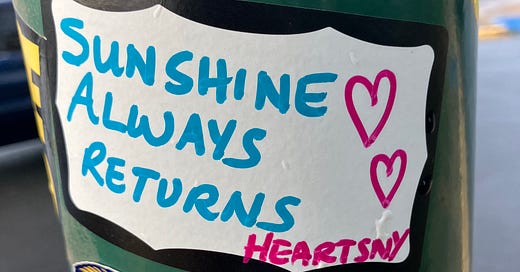 SUNSHINE
ALWAYS
RETURNS
HEARTSNY